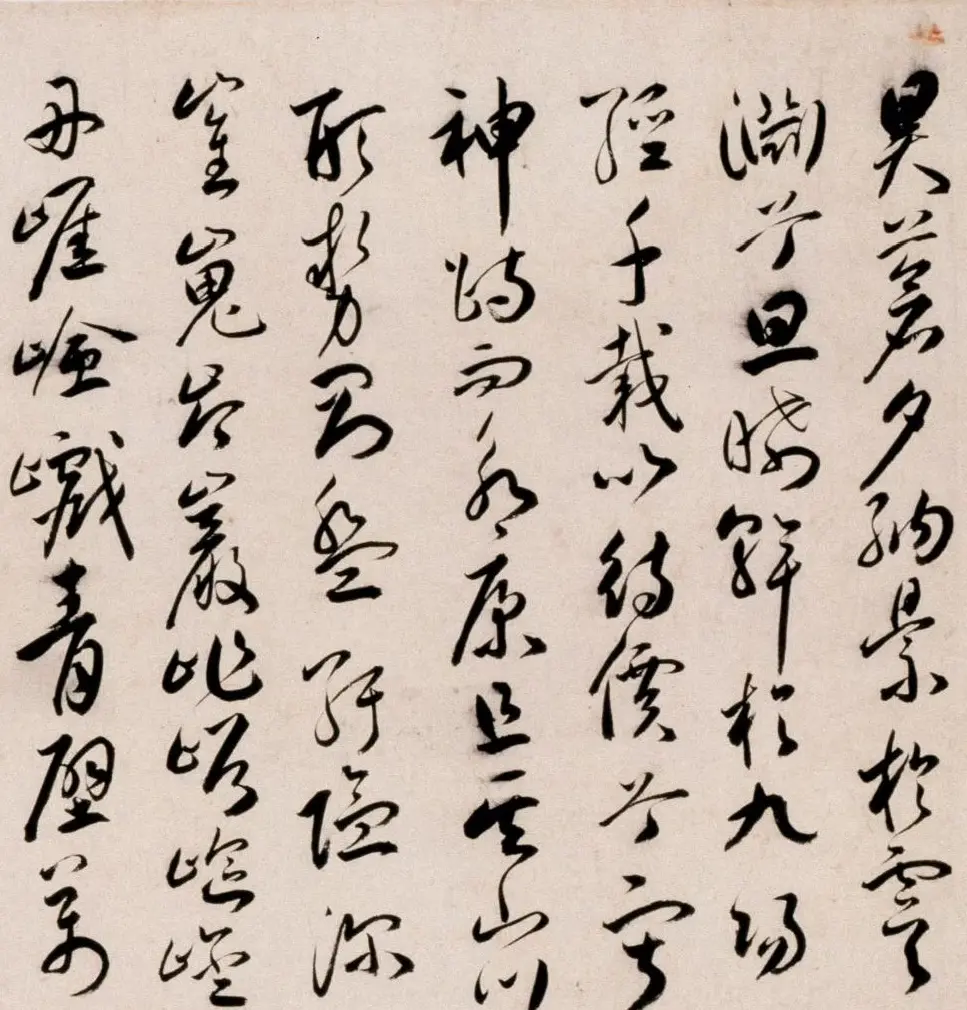 昊蒼夕納景於虞
淵兮旦晞幹於九陽
經千載以待價兮寂
神跱而永康且其山川
形勢則盤紆隱深
崔嵬岑巖岞崿嶇崯
丹崖嶮巇青壁萬